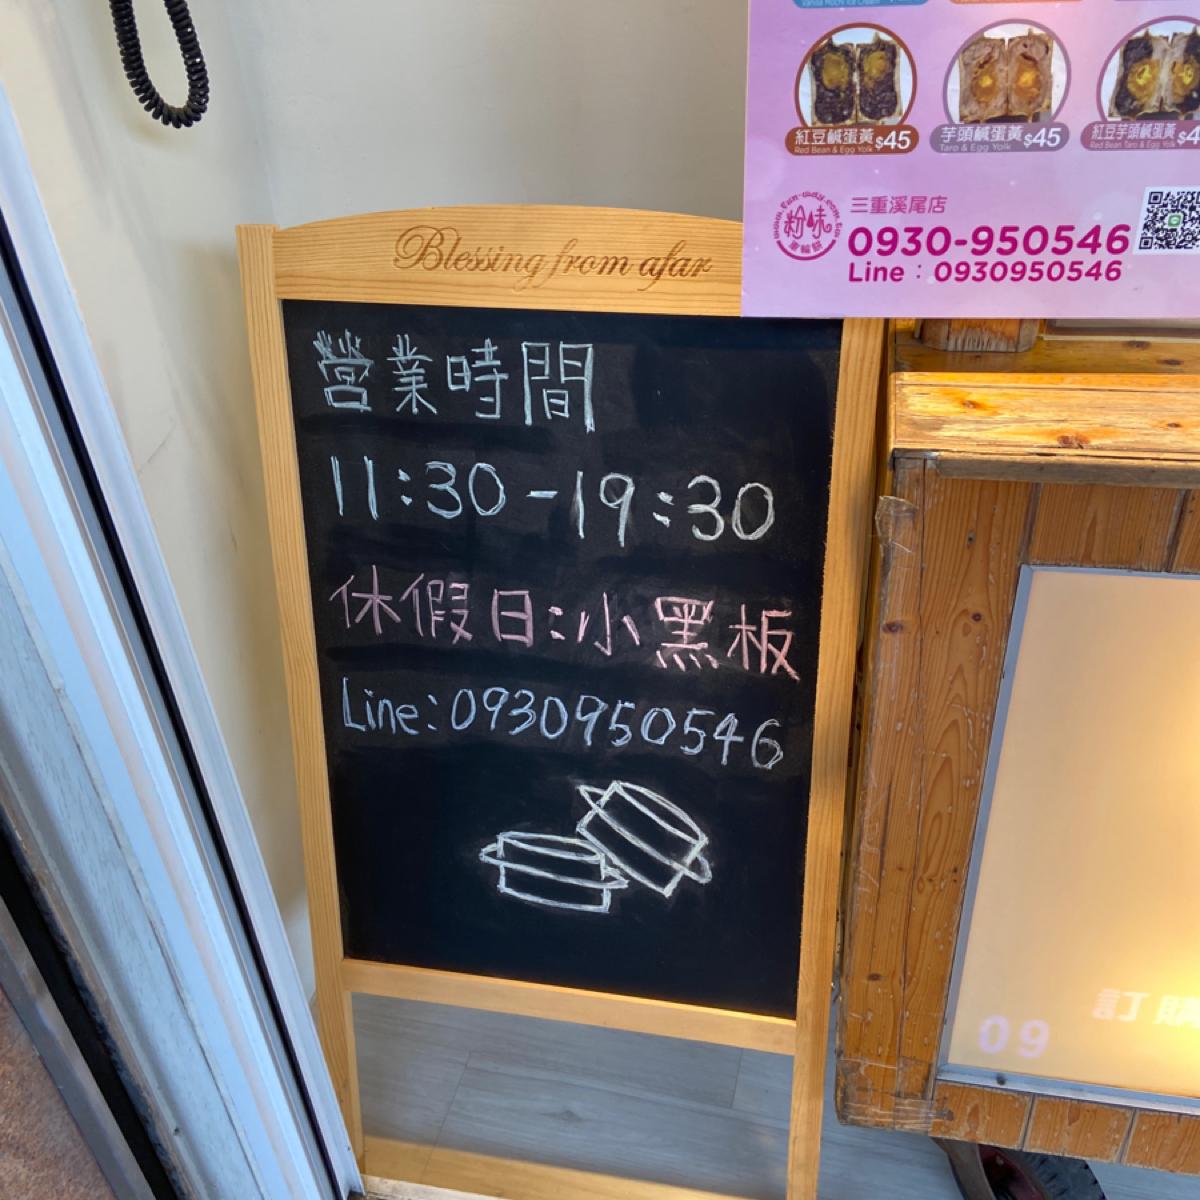 紅豆鹹蛋黃 $45
Red Bean & Egg Yolk
芋頭鹹蛋黃 $45
Taro & Egg Yolk
紅豆芋頭鹹蛋黃
Red Bean Taro & Egg Yolk
粉味
三重溪尾店
0930-950546
Line：0930950546
Blessing from afar
營業時間
11:30-19:30
休假日:小黑板
Line:0930950546
訂購
09